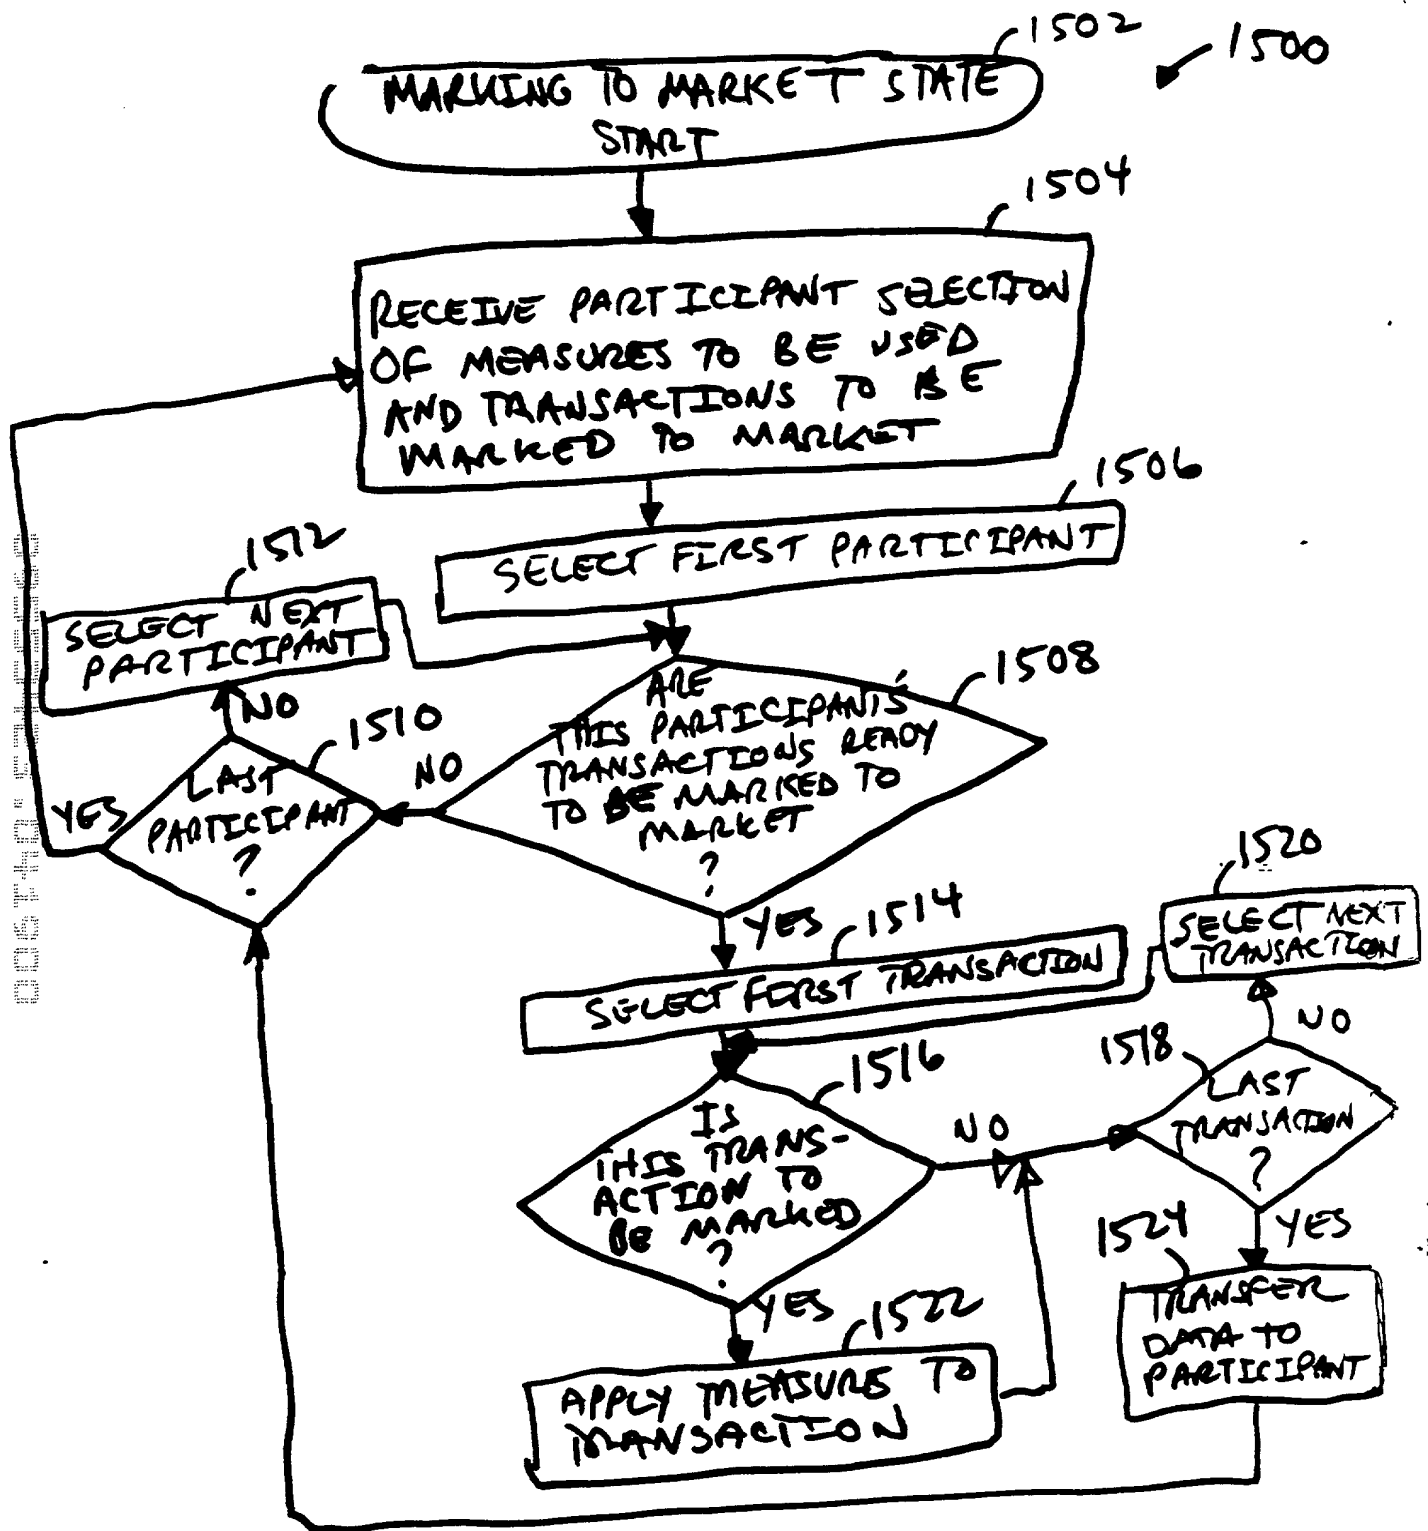 1502
1500
MARKING TO MARKET STATE
START
1504
RECEIVE PARTICIPANT SELECTION
OF MEASURES TO BE USED
AND TRANSACTIONS TO BE
MARKED TO MARKET
1506
SELECT FIRST PARTICIPANT
1512
SELECT NEXT
PARTICIPANT
NO
1508
ARE
THIS PARTICIPANTS'
TRANSACTIONS READY
TO BE MARKED TO
MARKET
?
NO
1510
LAST
PARTICIPANT
?
YES
YES
1514
SELECT FIRST TRANSACTION
1520
SELECT NEXT
TRANSACTION
NO
1516
IS
THIS TRANS-
ACTION TO
BE MARKED
?
NO
1518
LAST
TRANSACTION
?
YES
YES
1522
APPLY MEASURE TO
TRANSACTION
1524
TRANSFER
DATA TO
PARTICIPANT